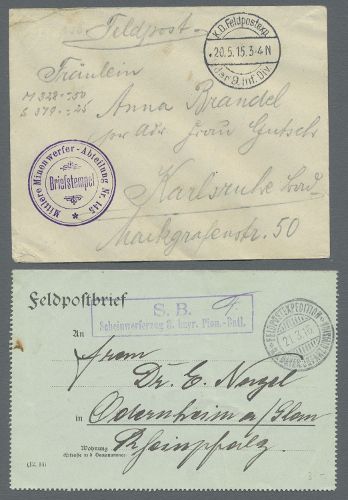 Feldpost
K.D.Feldpostexp.
20.5.15.3-4N
der 9.Inf.Div.
Fräulein
M 328.-50
S 379.-25
Anna Brandel
per Adr Frau
Mittlere Minenwerfer-Abteilung Nr. 145
Briefstempel
Karlsruhe Bad.
Markgrafenstr. 50
Feldpostbrief
S. B.
Scheinwerferzug 3. bayr. Pion.-Batl.
An
21.3.15
Herrn
Dr. E. Nergel
in
Odernheim a/Glan
Wohnung
(Straße u. Hausnummer)
Rheinpfalz